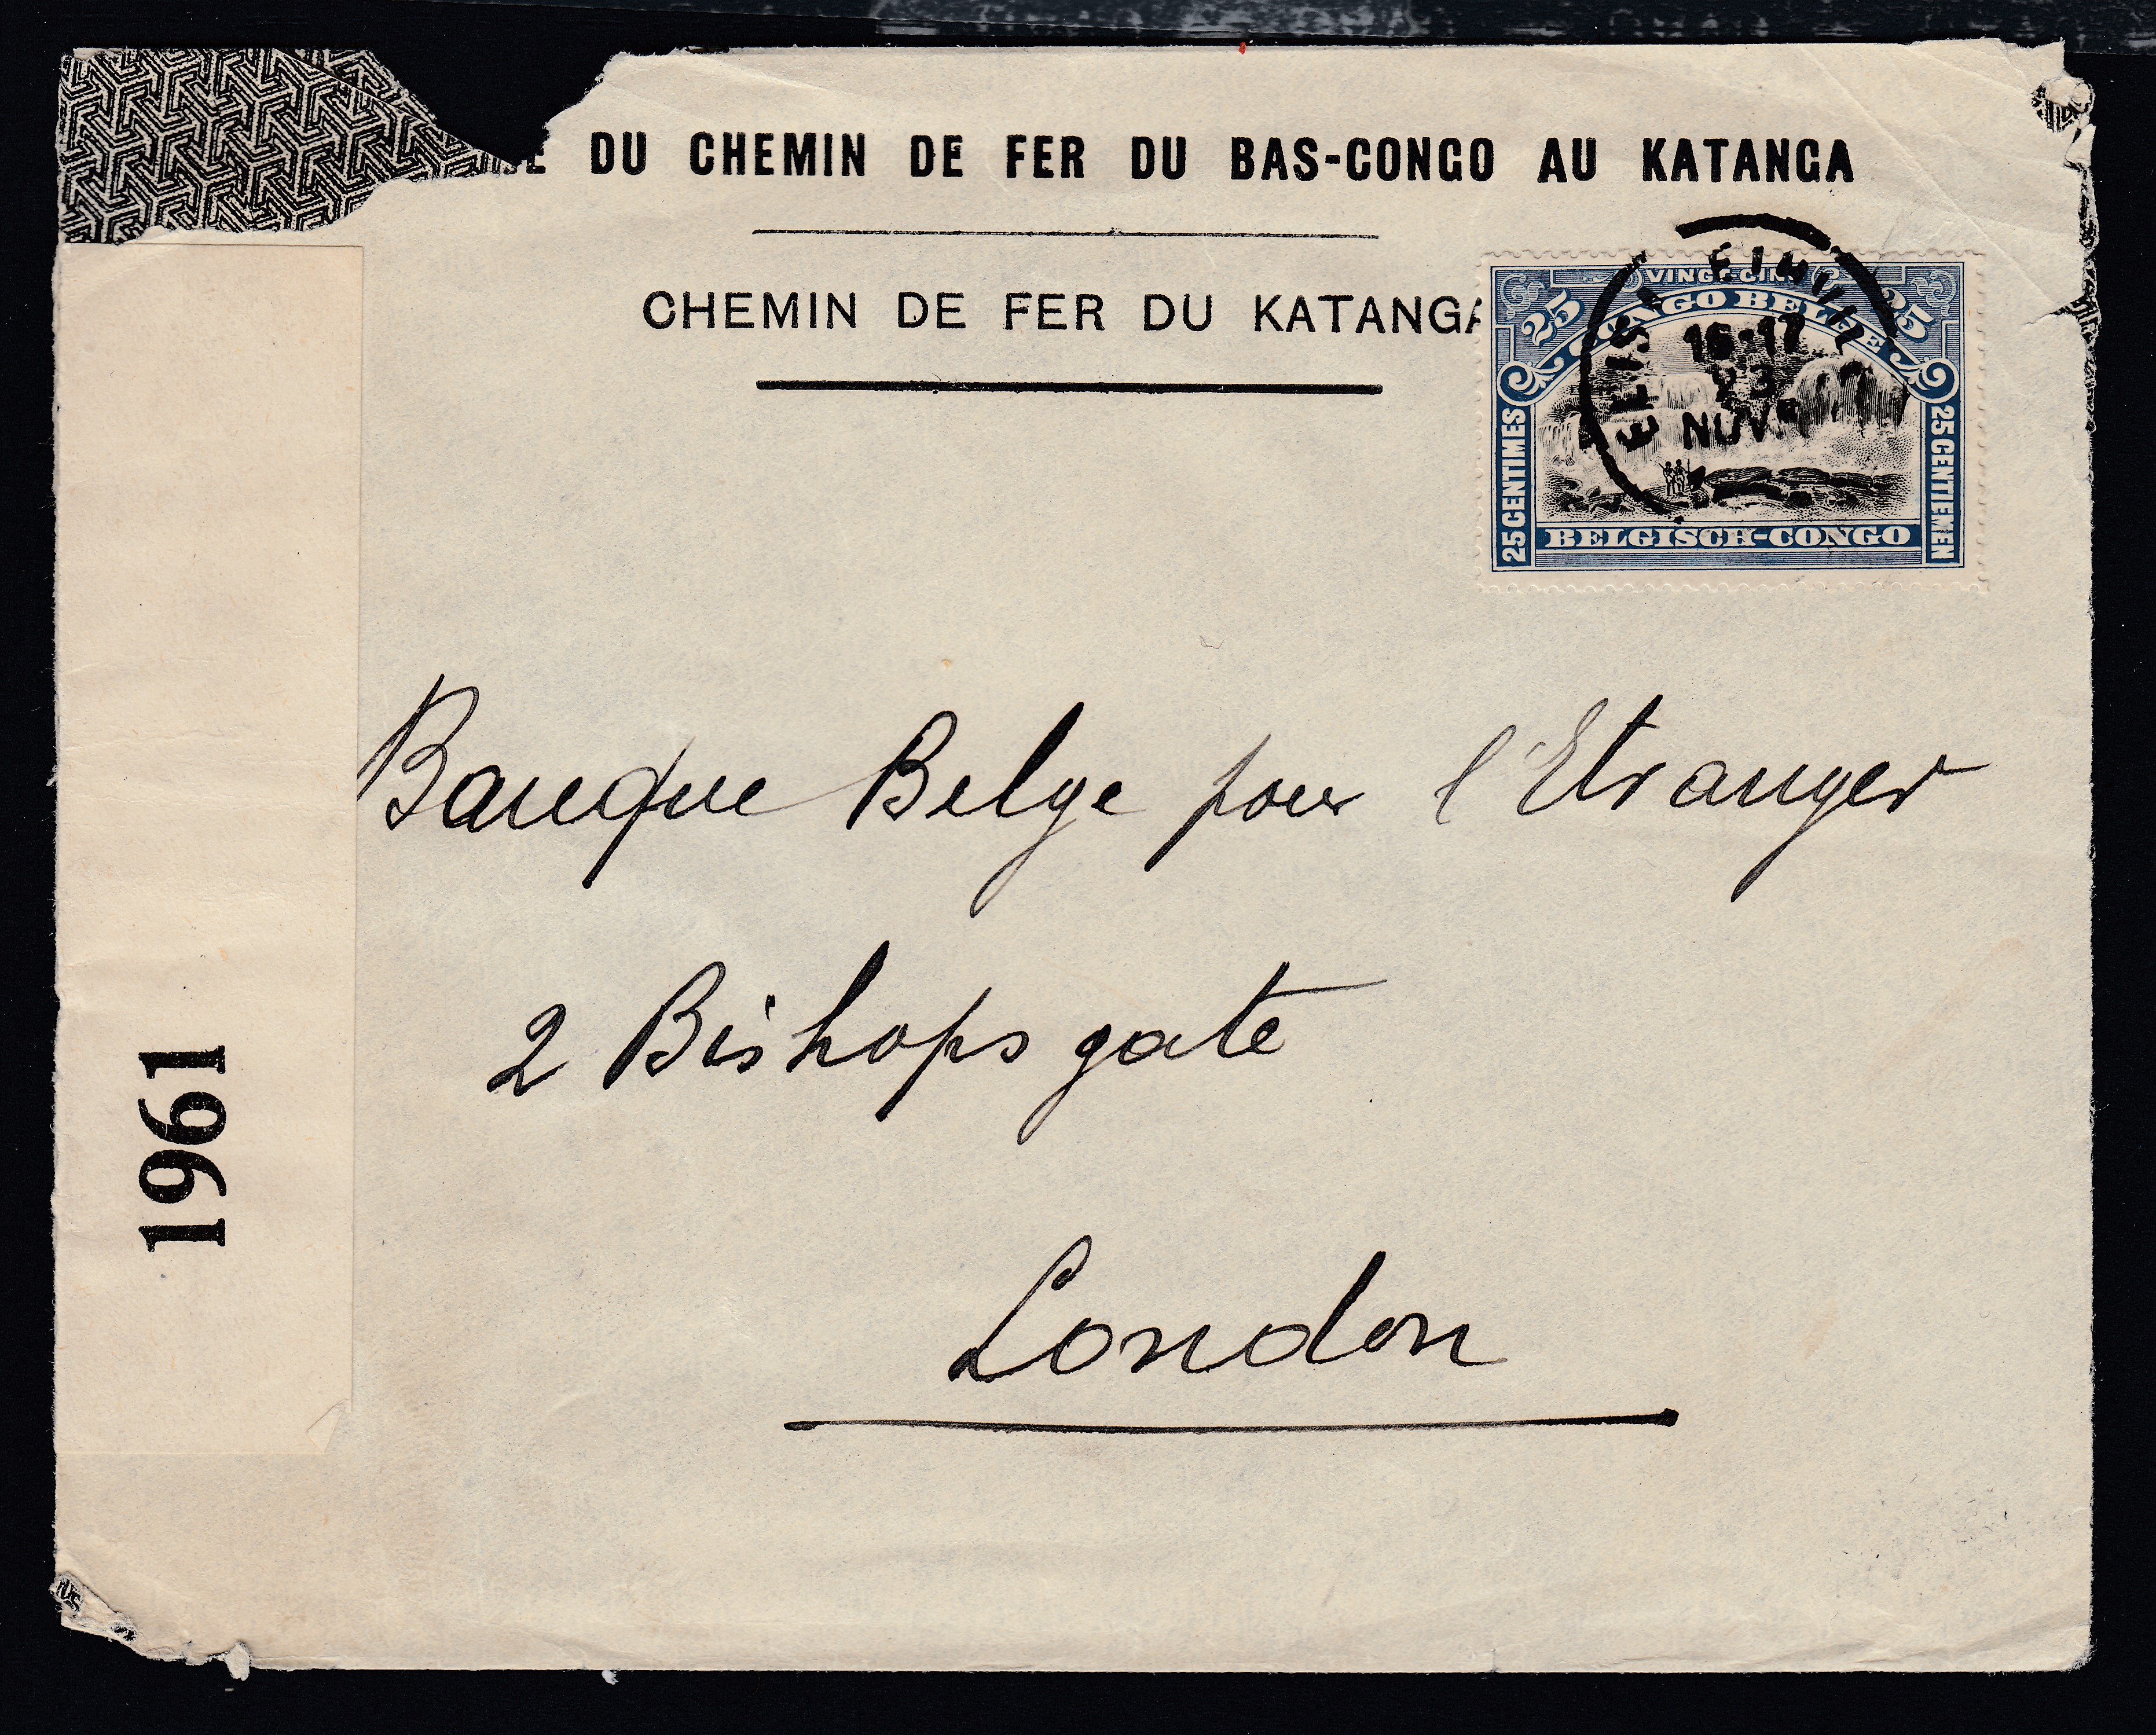 DU CHEMIN DE FER DU BAS-CONGO AU KATANGA
CHEMIN DE FER DU KATANGA
VINGT-CINQ
25 25
CONGO BELGE
16-17
23
NOV.
25 CENTIMES
25 CENTIEMEN
BELGISCH-CONGO
Banque Belge pour l'Etranger
2 Bishopsgate
London
1961